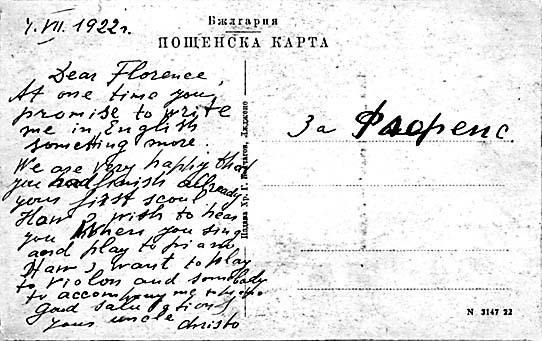 4. VII. 1922 г.
Бжлгария
ПОЩЕНСКА КАРТА
Dear Florence,
At one time you
promise to write
me in English
something more.
We are very happy that
you had finish allready
your first scoul
How I wish to hear
you when you sing
and play to piano,
How I want to play
to violon and somebody
to accompany me
good salutations,
your uncle Christo
За Флоренс
Издава Хр. Г.
N 3147 22